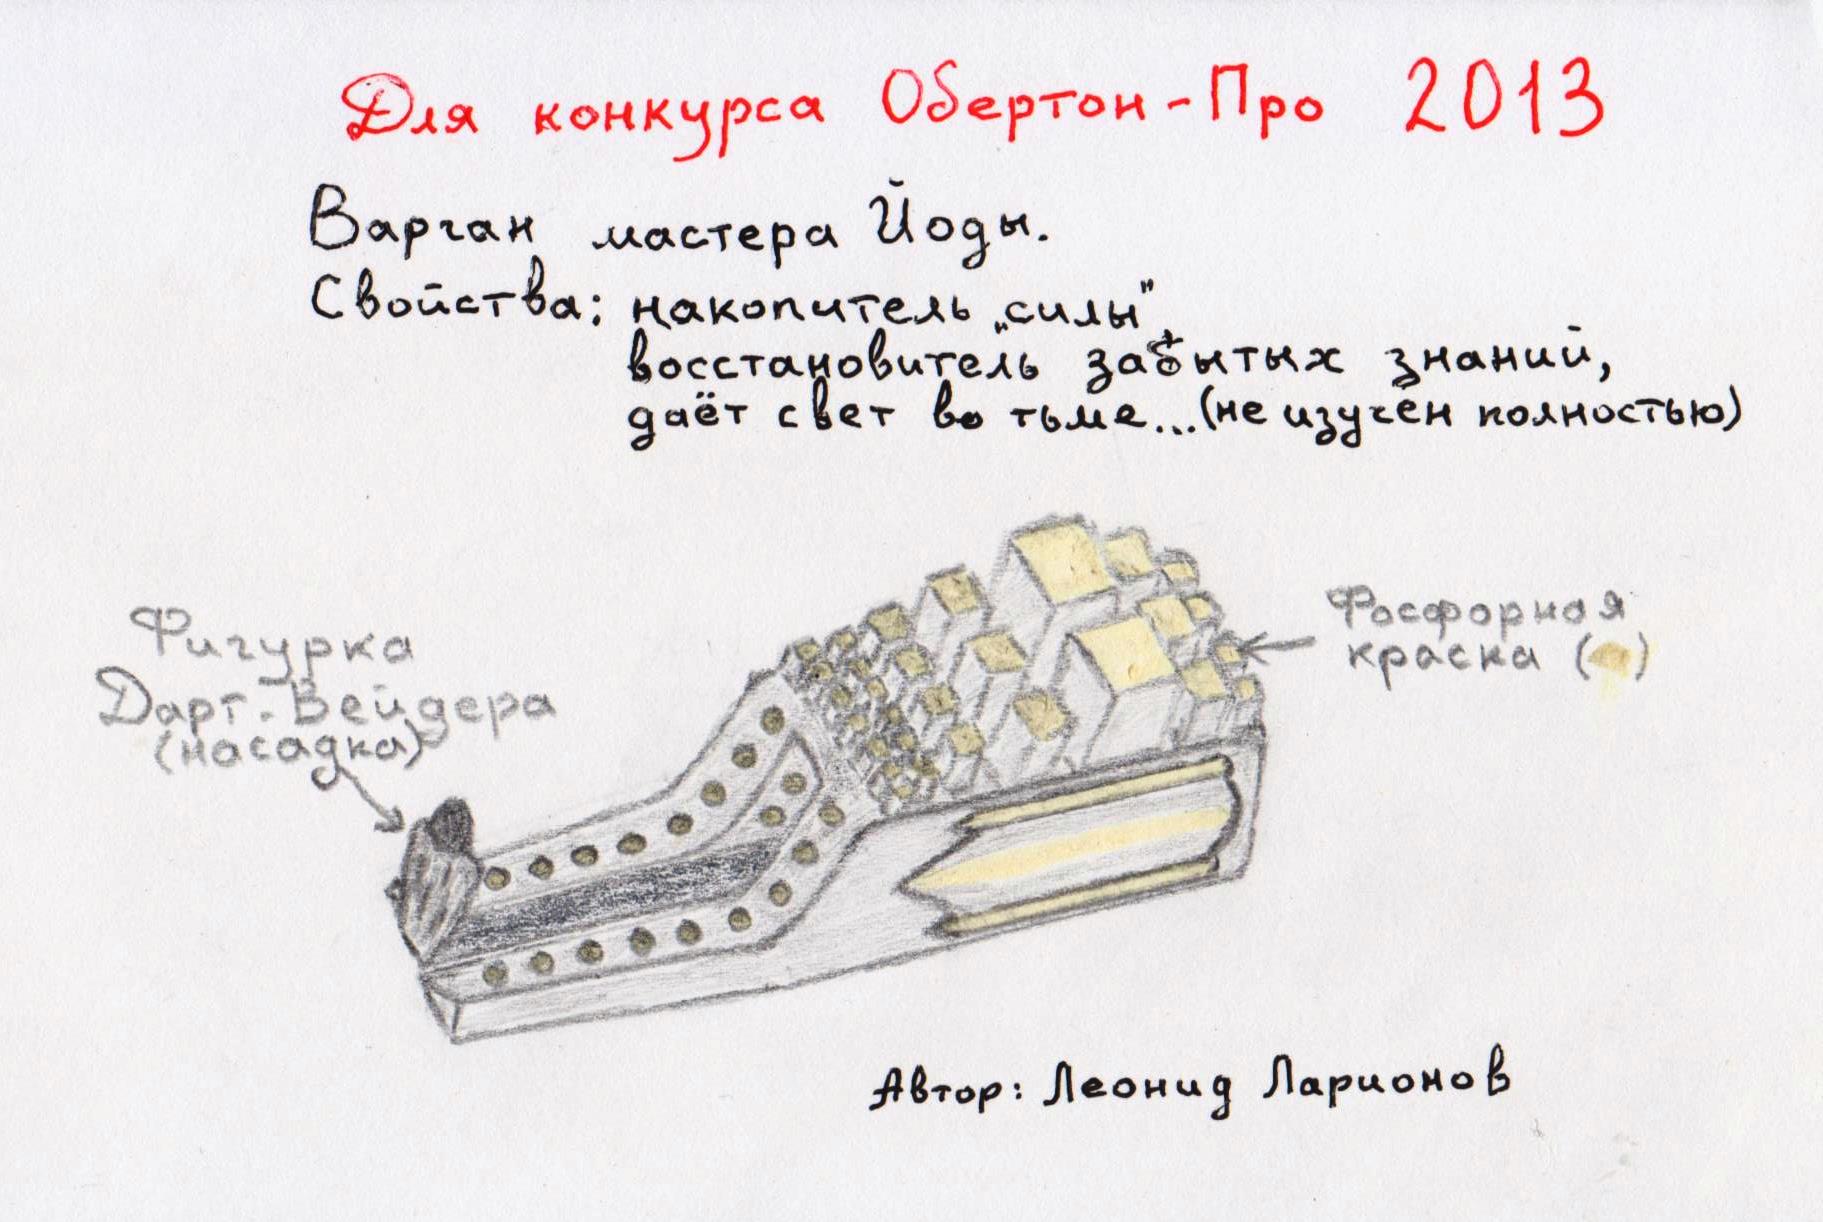 Для конкурса Обертон-Про 2013
Варган мастера Йоды.
Свойства: накопитель „силы”
восстановитель забытых знаний,
даёт свет во тьме...(не изучен полностью)
Фигурка
Дарт.Вейдера
(насадка)
Фосфорная
краска ( )
Автор: Леонид Ларионов